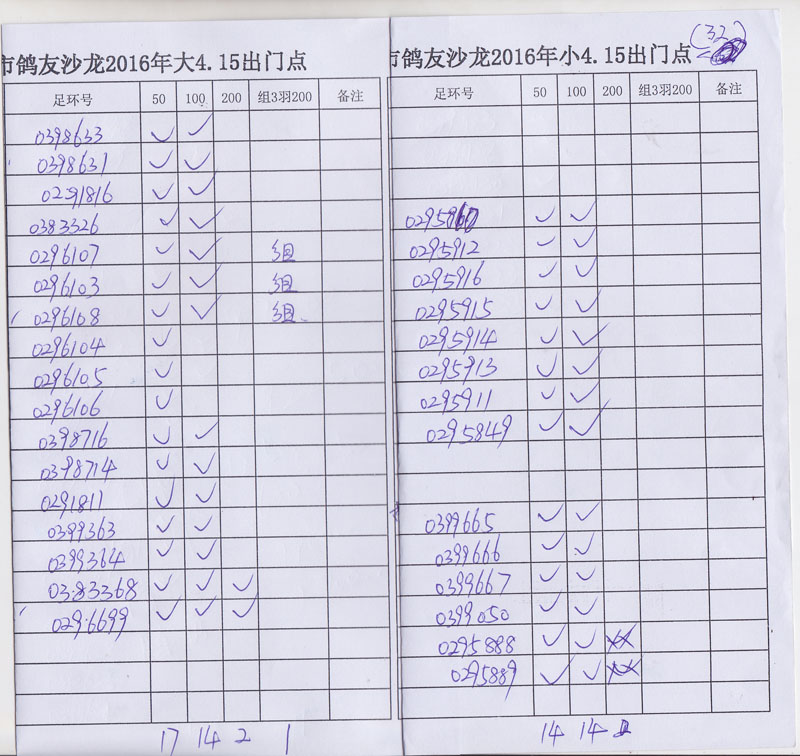 市鸽友沙龙2016年大4.15出门点
足环号 50 100 200 组3羽200 备注
0398633 ✓ ✓
0398631 ✓ ✓
0291816 ✓ ✓
0383326 ✓ ✓
0296107 ✓ ✓ 组
0296103 ✓ ✓ 组
0296108 ✓ ✓ 组
0296104 ✓
0296105 ✓
0296106 ✓
0398716 ✓ ✓
0398714 ✓ ✓
0291811 ✓ ✓
0399363 ✓ ✓
0399364 ✓ ✓
0383368 ✓ ✓ ✓
0296699 ✓ ✓ ✓
17 14 2 1
(32)
市鸽友沙龙2016年小4.15出门点
足环号 50 100 200 组3羽200 备注
✓ ✓
0295912 ✓ ✓
0295916 ✓ ✓
0295915 ✓ ✓
0295914 ✓ ✓
0295913 ✓ ✓
0295911 ✓ ✓
0295849 ✓ ✓
0399665 ✓ ✓
0399666 ✓ ✓
0399667 ✓ ✓
0399050 ✓ ✓
0295888 ✓ ✓
0295889 ✓ ✓
14 14